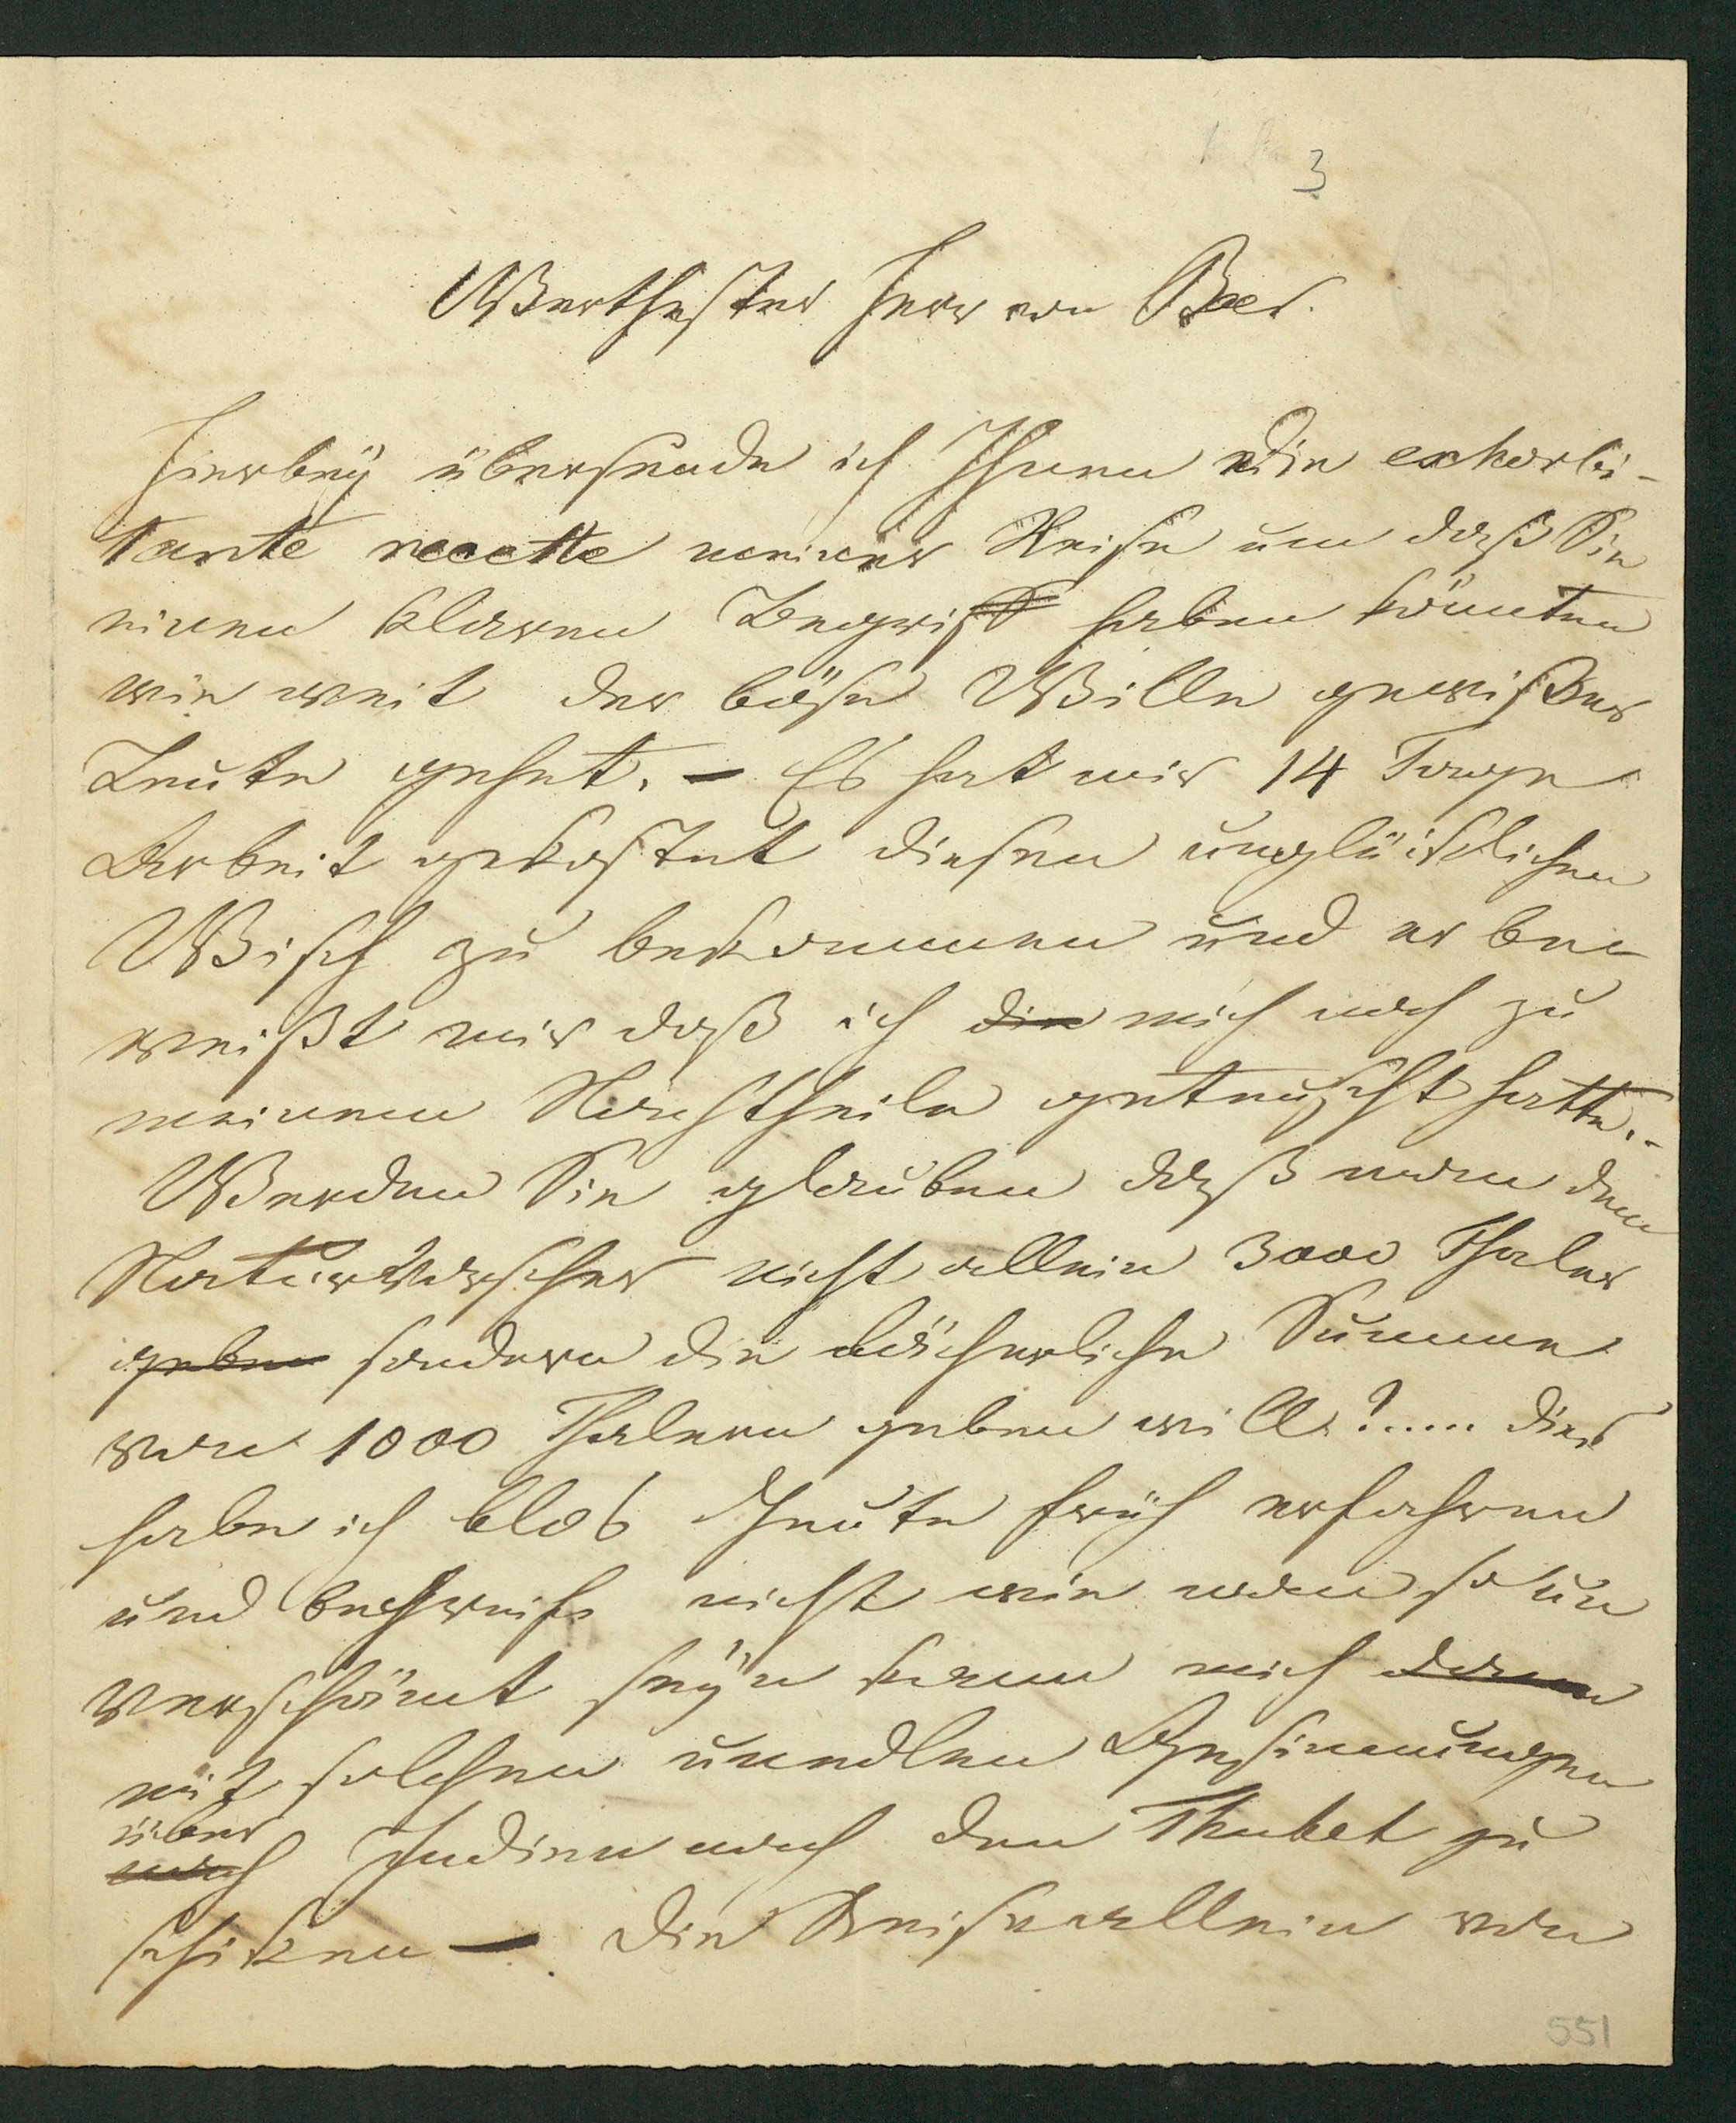 3
Werthester Herr von Baer.
Hierbeÿ übersende ich Ihnen die exhorbi-
tante recette meiner Reise um daß Sie
einen klaren Begrif haben könnten
wie weit der böse Wille gewißer
Leute gehet. – Es hat mir 14 Tage
Arbeit gekostet diesen unglücklichen
Wisch zu bekommen und er be
weißt mir daß ich die mich noch zu
meinem Nachtheile geteuscht hatte. -
Werden Sie glauben daß man dem
Naturforscher nicht allein 3000 Thaler
geben sondern die lächerliche Summe
von 1000 Thalern geben will?..... dies
habe ich blos Heute früh erfahren
und begreife nicht wie man so un
verschämt seÿn kann mich dann
mit solchen unedlen Gesinnungen
über
nach Indien nach den Thubet zu
schiken – die Reise allein von
551